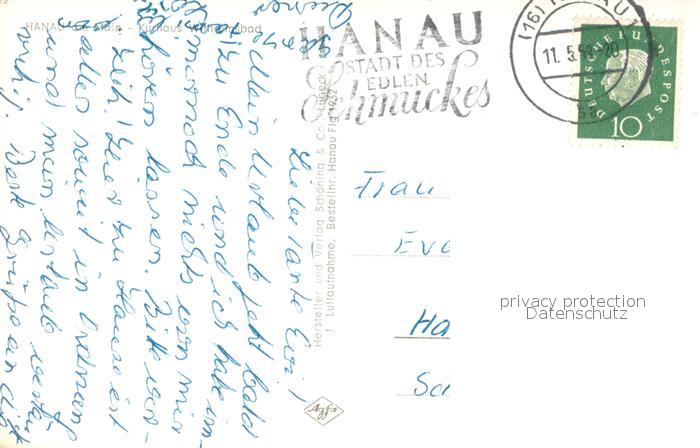 HANAU am Main - Kurhaus Wilhelmsbad
HANAU
STADT DES
EDLEN
Schmuckes
(16) HANAU 1
11.5.59.-20
DEUTSCHE BUNDESPOST
10
Hersteller und Verlag Schöning & Co., Lübeck
Luftaufnahme, Bestellnr. Hanau Flg 1932
Liebe Tante Evi!
Mein Urlaub geht bald
zu Ende und ich habe im-
mer noch nichts von mir
hören lassen. Bitte ver-
zeih! Hier zu Hause ist
alles soweit in Ordnung
und mein Urlaub
ruhig. Viele Grüße an dich
Frau
Ev
Ha
Sc
Agfa
privacy protection
Datenschutz